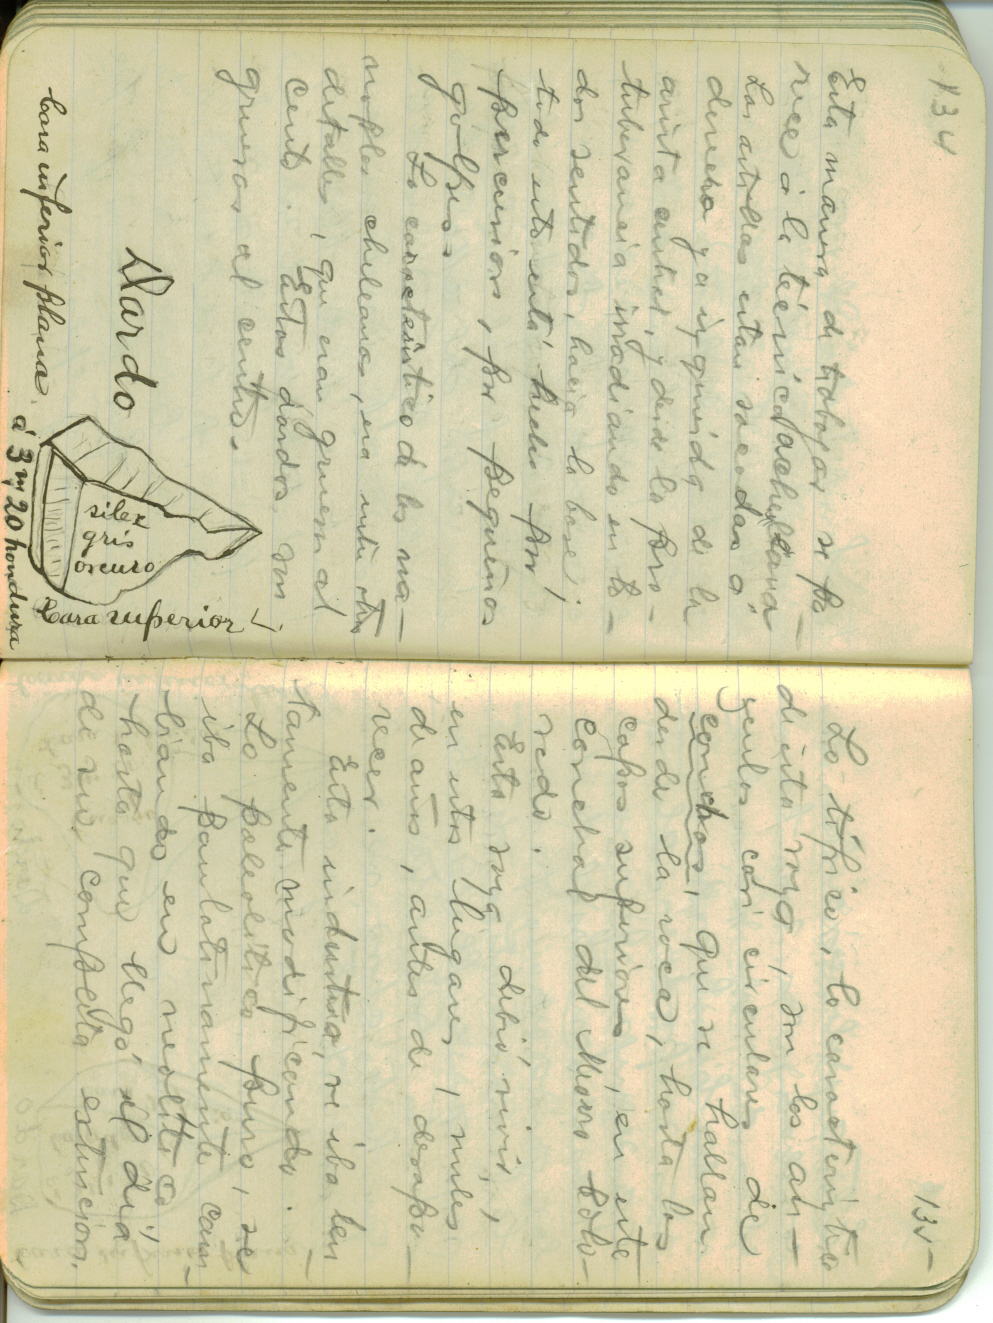 134
Esta manera de trabajar se pa-
rece á la técnica acheleana
Las astillas estan sacadas á
derecha y a izquierda de la
arista central, y desde la pro-
tuberancia irradiando en to-
dos sentidos, hacia la base;
todo esto está hecho por
percusion, por pequeños
golpes.
Lo caracteristico de los ma-
noples chileanos, era entre otros
detalles, que eran gruesos al
cento. Estos dardos, son
gruesos al centro.
Dardo
silex
gris
oscuro
Cara superior
Cara inferior plana.
á 3 m, 20 hondura
135-
Lo típico, lo caracteristico
de esta raza, son los an-
zuelos casi circulares de
conchas, que se hallan
desde la roca, hasta las
capas superiores, en este
conchal del Morro Colo-
rado.
Esta raza debió vivir,
en estos lugares, miles
de años, antes de desapa-
recer.
Esta industria, se iba len
tamente modificando.
Lo paleolitico puro, se
iba paulatinamente cam-
biando en neolitico
hasta que llegó el dia
de su completa extincion.